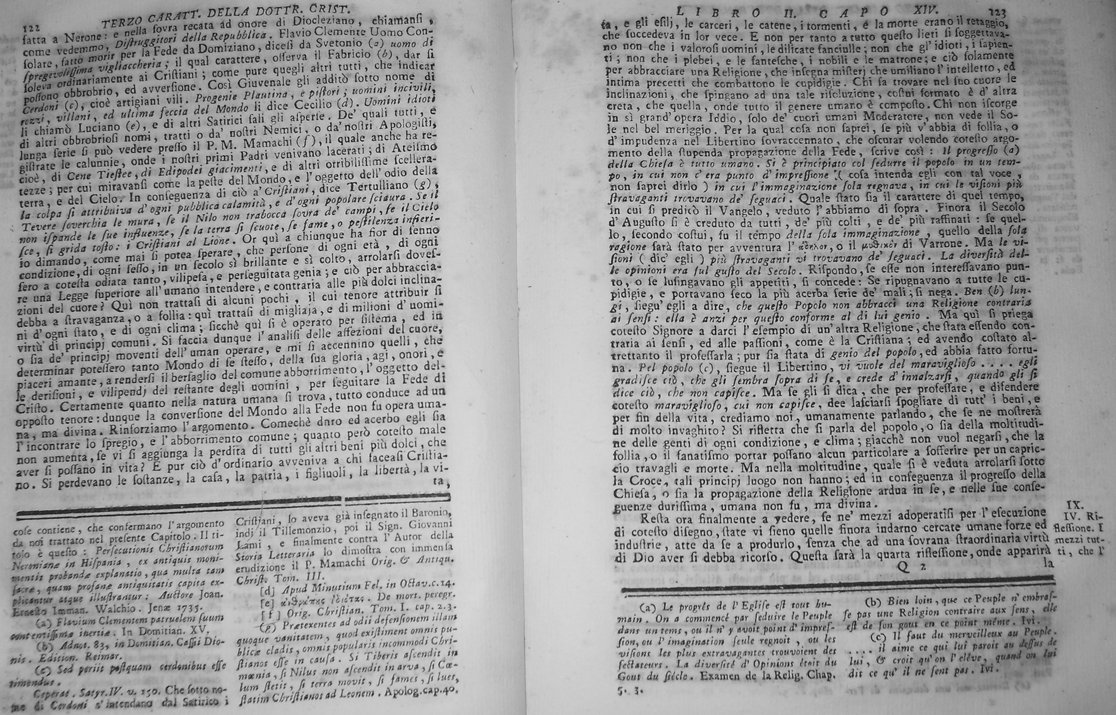 122
TERZO CARATT. DELLA DOTTR. CRIST.
fatta a Nerone: e nella ſovra recata ad onore di Diocleziano, chiamanſi,
come vedemmo, Diſtruggitori della Repubblica. Flavio Clemente Uomo Con-
ſolare, fatto morir per la Fede da Domiziano, diceſi da Svetonio (a) uomo di
ſpregevoliſſima vigliaccheria; il qual carattere, oſſerva il Fabricio (b), dar ſi
ſoleva ordinariamente ai Criſtiani; come pure quegli altri tutti, che indicar
poſſono obbrobrio, ed avverſione. Così Giuvenale gli additò ſotto nome di
Cerdoni (c), cioè artigiani vili. Progenie Plautina, e piſtori; uomini incivili,
rozzi, villani, ed ultima feccia del Mondo li dice Cecilio (d). Uomini idioti
li chiamò Luciano (e), e di altri Satirici ſali gli aſperſe. De' quali tutti, e
di altri obbrobrioſi nomi, tratti o da' noſtri Nemici, o da' noſtri Apologiſti,
lunga ſerie ſi può vedere preſſo il P. M. Mamachi (f), il quale anche ha re-
giſtrate le calunnie, onde i noſtri primi Padri venivano lacerati; di Ateiſmo
cioè, di Cene Tieſtee, di Edipodei giacimenti, e di altri orribiliſſime ſcellera-
tezze; per cui miravanſi come la peſte del Mondo, e l'oggetto dell'odio della
terra, e del Cielo. In conſeguenza di ciò a' Criſtiani, dice Tertulliano (g),
la colpa ſi attribuiva d'ogni pubblica calamità, e d'ogni popolare ſciaura. Se il
Tevere ſoverchia le mura, ſe il Nilo non trabocca ſovra de' campi, ſe il Cielo
non iſpande le ſue influenze, ſe la terra ſi ſcuote, ſe fame, o peſtilenza infieri-
ſce, ſi grida toſto: i Criſtiani al Lione. Or quì a chiunque ha fior di ſenno
io dimando, come mai ſi potea ſperare, che perſone di ogni età, di ogni
condizione, di ogni ſeſſo, in un ſecolo sì brillante e sì colto, arrolarſi doveſ-
ſero a coteſta odiata tanto, vilipeſa, e perſeguitata genia; e ciò per abbraccia-
re una Legge ſuperiore all'umano intendere, e contraria alle più dolci inclina-
zioni del cuore? Quì non trattaſi di alcuni pochi, il cui tenore attribuir ſi
debba a ſtravaganza, o a follia: quì trattaſi di migliaja, e di milioni d'uomi-
ni d'ogni ſtato, e di ogni clima; ſicchè quì ſi è operato per ſiſtema, ed in
virtù di principj comuni. Si faccia dunque l'analiſi delle affezioni del cuore,
o ſia de' principj moventi dell'uman operare, e mi ſi accennino quelli, che
determinar poteſſero tanto Mondo di ſe ſteſſo, della ſua gloria, agi, onori, e
piaceri amante, a renderſi il berſaglio del comune abborrimento, l'oggetto del-
le deriſioni, e vilipendj del reſtante degli uomini, per ſeguitare la Fede di
Criſto. Certamente quanto nella natura umana ſi trova, tutto conduce ad un
oppoſto tenore: dunque la converſione del Mondo alla Fede non fu opera uma-
na, ma divina. Rinforziamo l'argomento. Comechè duro ed acerbo egli ſia
l'incontrare lo ſpregio, e l'abborrimento comune; quanto però coteſto male
non aumenta, ſe vi ſi aggionga la perdita di tutti gli altri beni più dolci, che
aver ſi poſſano in vita? E pur ciò d'ordinario avveniva a chi faceaſi Criſtia-
no. Si perdevano le ſoſtanze, la caſa, la patria, i figliuoli, la libertà, la vi-
ta,
coſe contiene, che confermano l'argomento
da noi trattato nel preſente Capitolo. Il ti-
tolo è queſto: Perſecutionis Chriſtianorum
Neronianæ in Hiſpania, ex antiquis moni-
mentis probandæ explanatio, qua multa tam
ſacræ, quam profanæ antiquitatis capita ex-
plicantur atque illuſtrantur: Auctore Joan.
Erneſto Imman. Walchio. Jenæ 1735.
(a) Flavium Clementem patruelem ſuum
contemtiſſimæ inertiæ. In Domitian. XV.
(b) Adnot. 83, in Domitian. Caſſii Dio-
nis. Edition. Reimar.
(c) Sed periit poſtquam cerdonibus eſſe
timendus
Ceperat. Satyr. IV. v. 150. Che ſotto no-
me di Cerdoni s'intendano dal Satirico i
Criſtiani, lo aveva già inſegnato il Baronio,
indi il Tillemonzio, poi il Sign. Giovanni
Lami, e finalmente contra l'Autor della
Storia Letteraria lo dimoſtra con immenſa
erudizione il P. Mamachi Orig. & Antiqu.
Chriſto Tom. III.
[d] Apud Minutium Fel. in Octav. c. 14.
[e] De mort. peregr.
[f] Orig. Chriſtian. Tom. I. cap. 2. 3.
(g) Prætexentes ad odii defenſionem illam
quoque vanitatem, quod exiſtiment omnis pu-
blicæ cladis, omnis popularis incommodi Chri-
ſtianos eſſe in cauſa. Si Tiberis aſcendit in
mœnia, ſi Nilus non aſcendit in arva, ſi Cœ-
lum ſtetit, ſi terra movit, ſi fames, ſi lues,
ſtatim Chriſtianos ad Leonem. Apolog. cap. 40.
LIBRO II. CAPO XIV.
123
ta, e gli eſilj, le carceri, le catene, i tormenti, e la morte erano il retaggio,
che ſuccedeva in lor vece. E non per tanto a tutto queſto lieti ſi ſoggettava-
no non che i valoroſi uomini, le dilicate fanciulle; non che gl'idioti, i ſapien-
ti; non che i plebei, e le fanteſche, i nobili e le matrone; e ciò ſolamente
per abbracciare una Religione, che inſegna miſterj che umiliano l'intelletto, ed
intima precetti che combattono le cupidigie. Chi ſa trovare nel ſuo cuore le
inclinazioni, che ſpingano ad una tale riſoluzione, coſtui formato è d'altra
creta, che quella, onde tutto il genere umano è compoſto. Chi non iſcorge
in sì grand'opera Iddio, ſolo de' cuori umani Moderatore, non vede il So-
le nel bel meriggio. Per la qual coſa non ſaprei, ſe più v'abbia di follia, o
d'impudenza nel Libertino ſovraccennato, che oſcurar volendo coteſto argo-
mento della ſtupenda propagazione della Fede, ſcrive così: Il progreſſo (a)
della Chieſa è tutto umano. Si è principiato col ſedurre il popolo in un tem-
po, in cui non c'era punto d'impreſſione (coſa intenda egli con tal voce,
non ſaprei dirlo) in cui l'immaginazione ſola regnava, in cui le viſioni più
ſtravaganti trovavano de' ſeguaci. Quale ſtato ſia il carattere di quel tempo,
in cui ſi predicò il Vangelo, veduto l'abbiamo di ſopra. Finora il Secolo
d'Auguſto ſi è creduto da tutti, de' più colti, e de' più raffinati: ſe quel-
lo, ſecondo coſtui, fu il tempo della ſola immaginazione, quello della ſola
ragione ſarà ſtato per avventura l' o il μυθικὸν di Varrone. Ma le vi-
ſioni (dic' egli) più ſtravaganti vi trovavano de' ſeguaci. La diverſità del-
le opinioni era ſul guſto del Secolo. Riſpondo, ſe eſſe non intereſſavano pun-
to, o ſe luſingavano gli appetiti, ſi concede: Se ripugnavano a tutte le cu-
pidigie, e portavano ſeco la più acerba ſerie de' mali; ſi nega. Ben (b) lun-
gi, ſiegu' egli a dire, che queſto Popolo non abbracci una Religione contraria
ai ſenſi: ella è anzi per queſto conforme al di lui genio. Ma quì ſi priega
coteſto Signore a darci l'eſempio di un'altra Religione, che ſtata eſſendo con-
traria ai ſenſi, ed alle paſſioni, come è la Criſtiana; ed avendo coſtato al-
trettanto il profeſſarla; pur ſia ſtata di genio del popolo, ed abbia fatto fortu-
na. Pel popolo (c), ſiegue il Libertino, vi vuole del maraviglioſo .... egli
gradiſce ciò, che gli ſembra ſopra di ſe, e crede d'innalzarſi, quando gli ſi
dice ciò, che non capiſce. Ma ſe gli ſi dica, che per profeſſare, e difendere
coteſto maraviglioſo, cui non capiſce, dee laſciarſi ſpogliare di tutt' i beni, e
per fin della vita, crediamo noi, umanamente parlando, che ſe ne moſtrerà
di molto invaghito? Si rifletta che ſi parla del popolo, o ſia della moltitudi-
ne delle genti di ogni condizione, e clima; giacchè non vuol negarſi, che la
follia, o il fanatiſmo portar poſſano alcun particolare a ſofferire per un capric-
cio travagli e morte. Ma nella moltitudine, quale ſi è veduta arrolarſi ſotto
la Croce, tali principj luogo non hanno; ed in conſeguenza il progreſſo della
Chieſa, o ſia la propagazione della Religione ardua in ſe, e nelle ſue conſe-
guenze duriſſima, umana non fu, ma divina.
Reſta ora finalmente a vedere, ſe ne' mezzi adoperatiſi per l'eſecuzione
di coteſto diſegno, ſtate vi ſieno quelle finora indarno cercate umane forze ed
induſtrie, atte da ſe a produrlo, ſenza che ad una ſovrana ſtraordinaria virtù
di Dio aver ſi debba ricorſo. Queſta ſarà la quarta rifleſſione, onde apparirà
IX.
IV. Ri-
fleſſione. I
mezzi tut-
ti, che l'
Q 2
la
(a) Le progrès de l'Egliſe eſt tout hu-
main. On a commencé par ſeduire le Peuple
dans un tems, ou il n'y avoit point d'impreſ-
ſion, ou l'imagination ſeule regnoit, ou les
viſions les plus extravagantes trouvoient des
ſectateurs. La diverſité d'Opinions étoit du
Gout du ſiécle. Examen de la Relig. Chap.
5. 3.
(b) Bien loin, que ce Peuple n'embraſ-
ſe pas une Religion contraire aux ſens, elle
eſt de ſon gout en ce point même. Ivi.
(c) Il faut du merveilleux au Peuple.
.... il aime ce qui lui parois au deſſus de
lui, & croit qu'on l'elève, quand on lui
dit ce qu'il ne ſent pas. Ivi.